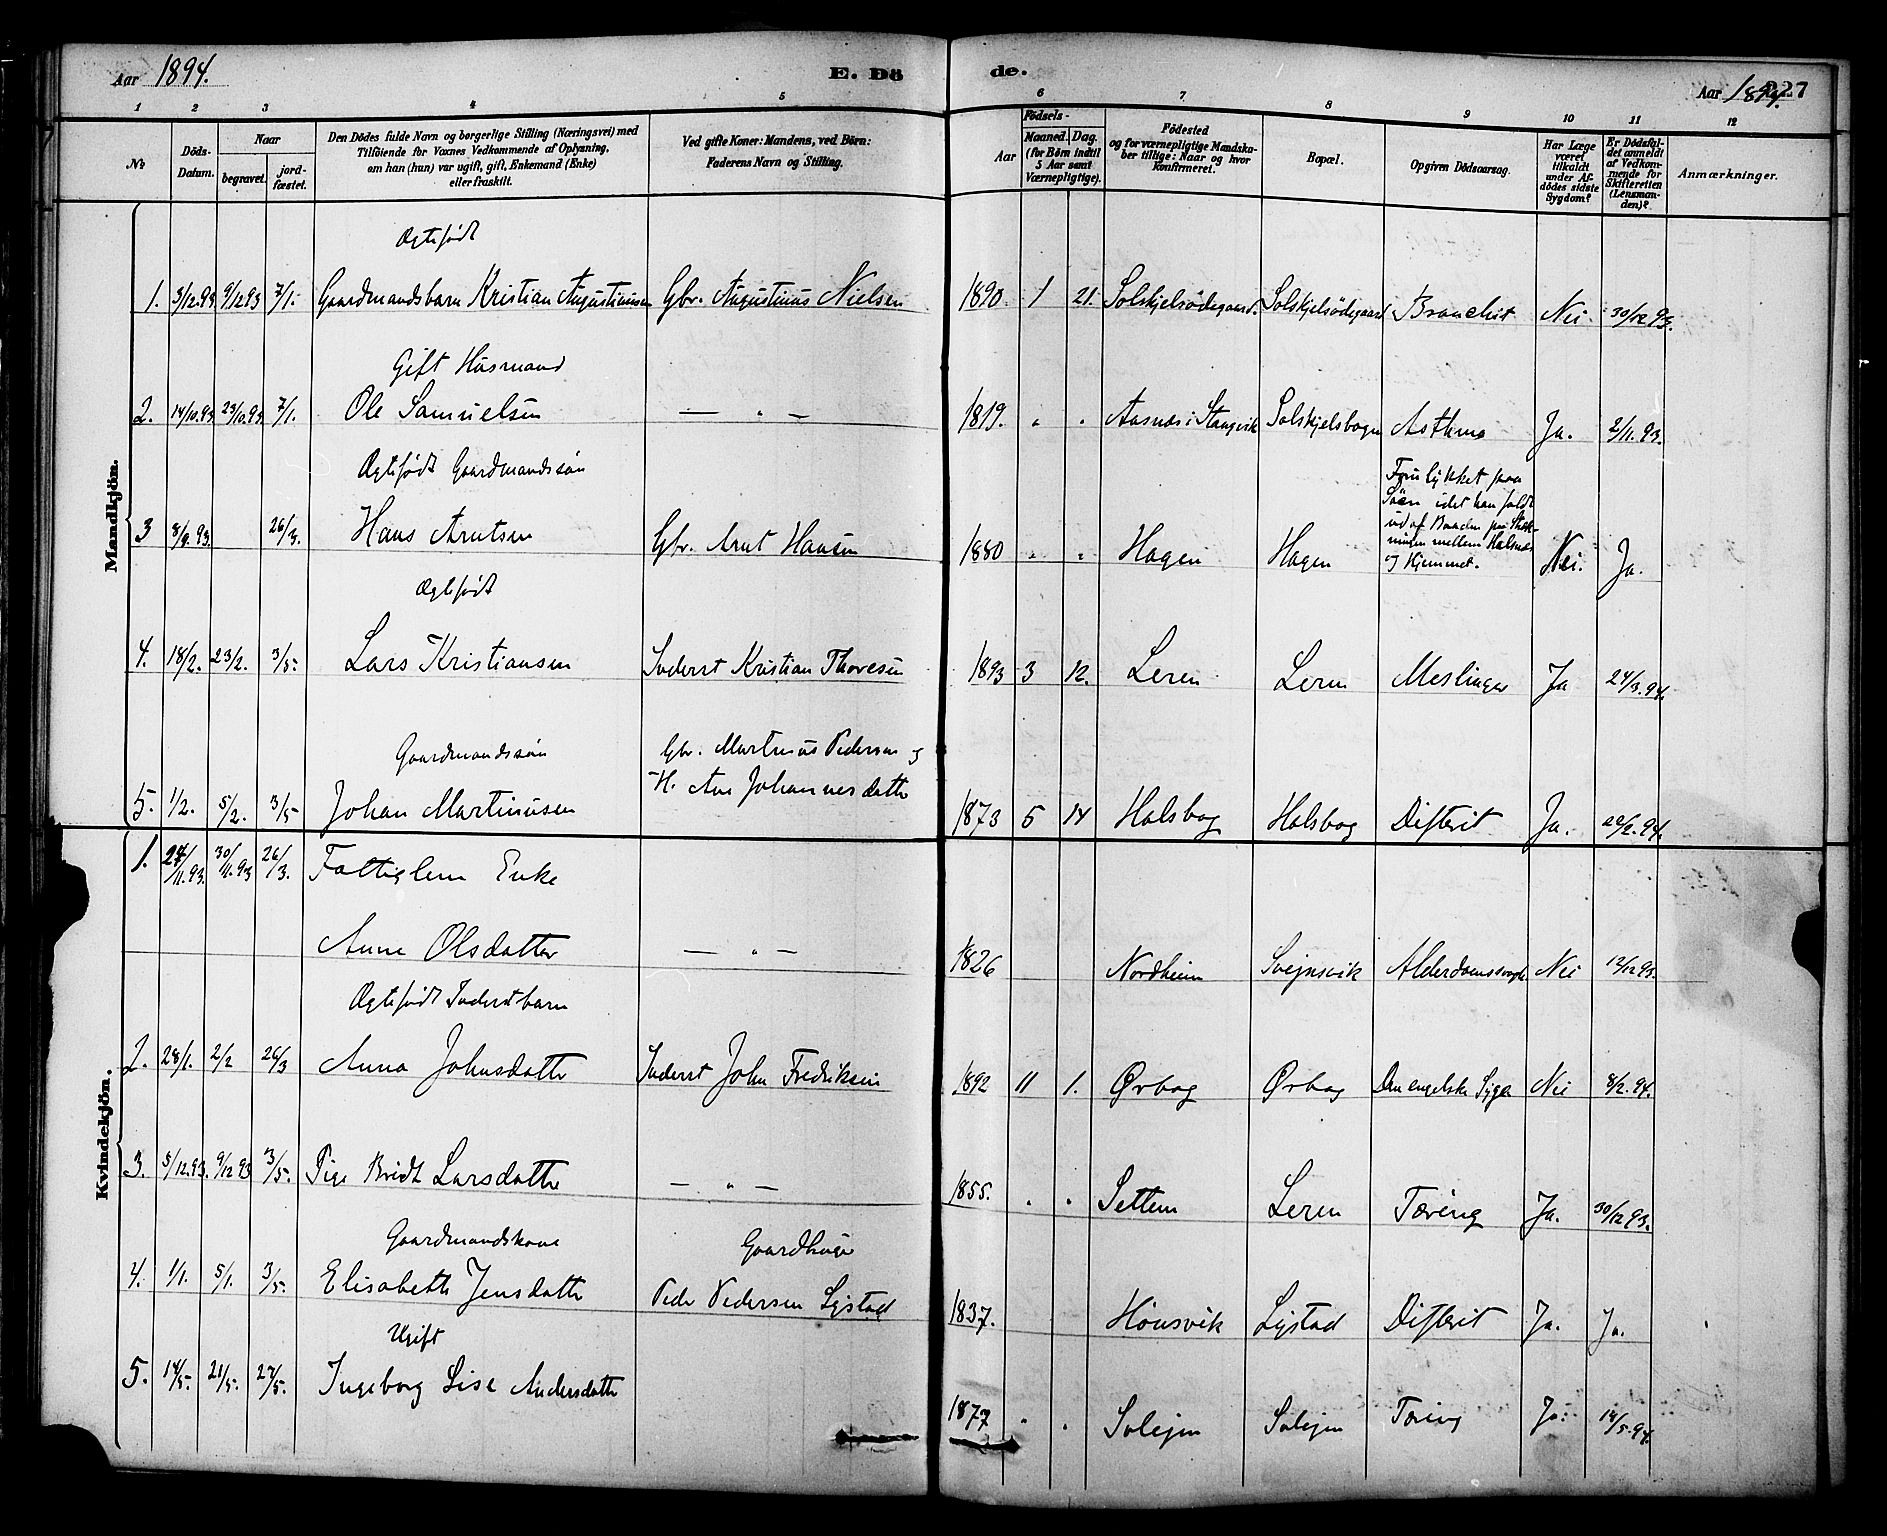 Aar 1894. E. Dö de. Aar 1894. 227
1 2 3 4 5 6 7 8 9 10 11 12
№
Döds-Datum.
Naar
begravet.
jord-fæstet.
Den Dödes fulde Navn og borgerlige Stilling (Næringsvei) med
Tilföiende for Voxnes Vedkommende af Oplysning,
om han (hun) var ugift, gift, Enkemand (Enke)
eller fraskilt.
Ved gifte Koner: Mandens, ved Börn:
Faderens Navn og Stilling.
Födsels-
Aar
Maaned. Dag.
(for Börn indtil
5 Aar samt
Værnepligtige).
Födested
og for værnepligtige Mandska-
ber tillige: Naar og hvor
konfirmeret.
Bopæl.
Opgiven Dödsaarsag.
Har Læge
været
tilkaldt
under Af-
dödes sidste
Sygdom?
Er Dödsfal-
det anmeldt
af Vedkom-
mende for
Skifteretten
(Lensman-
den)?
Anmærkninger.
Mandkjön.
Ægtefødt
1. 3/12.93 9/12 93 7/1. Gaardmandsbarn Kristian Augustinusen Gbr. Augustinus Nielsen 1890. 1 21. Solskjelsødegaard. Solskjelsødegaard Bronchit Nei 30/12 93.
Gift Husmand
2. 14/10.93. 23/10.93. 7/1. Ole Samuelsen — " — 1819. " " Aasnæs i Stangvik Solskjelsbogen Asthma Ja. 2/11.93.
Ægtefødt Gaardmandssøn
3 8/9.93. 26/3. Hans Arntsen Gbr. Arnt Hansen 1880 " " Hagen Hagen Forulykket paa
Søen idet han faldt
ud af Baaden paa
mellem Halsnæs
og Hjemmet. Nei. Ja.
Ægtefødt
4. 18/2. 23/2. 3/5. Lars Kristiansen Inderst Kristian Thoresen 1893 3 12. Leren Leren Meslinger Ja 24/3.94.
Gaardmandssøn Gbr. Martinus Pedersen og
5. 1/2. 5/2. 3/5 Johan Martinusen H. Ane Johannesdatter 1873 5 14 Halsbog Halsbog Difterit Ja. 22/2.94.
Kvindekjön.
1. 24/11.93. 30/11.93 26/3. Fattiglem Enke
Anne Olsdatter — " — 1826 Nordheim Svejnsvik Alderdomssvagh. Nei 12/12 93.
Ægtefødt Inderstbarn
2. 28/1. 2/2 26/3 Anna Johnsdatter Inderst John Fredriksen 1892 11 1. Ørbog Ørbog Den engelske Syge Nei 8/2.94.
3. 5/12.93. 9/12 93 3/5. Pige Bridt Larsdatter — " — 1855. " " Settem Leren Tæring Ja. 30/12 93.
Gaardmandskone Gaardbruger
4. 1/1. 5/1. 3/5. Elisabeth Jensdatter Peder Pedersen Lystad 1837. Hønsvik Lystad Difterit Ja. Ja.
Ugift
5. 14/5. 21/5. 27/5. Ingeborg Lise Andersdatter 1877 " " Solejen Solejen Tæring Ja. 14/5.94.